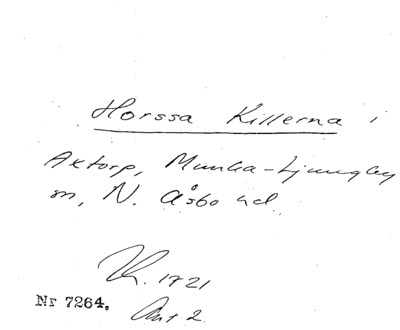 Horssa Killerna i
Axtorp, Munka-Ljungby
sn, N. Åsbo hd.
1721
Nr 7264. Ant 2.